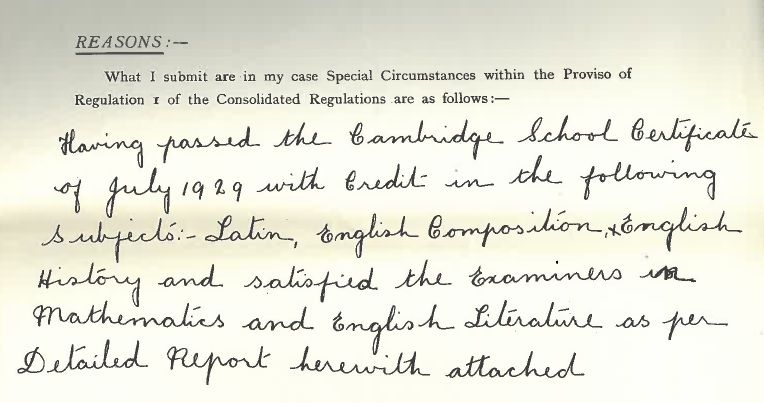 REASONS:—
What I submit are in my case Special Circumstances within the Proviso of
Regulation 1 of the Consolidated Regulations are as follows:—
Having passed the Cambridge School Certificate
of July 1929 with Credit in the following
Subjects:- Latin, English Composition, & English
History and satisfied the Examiners in
Mathematics and English Literature as per
Detailed Report herewith attached